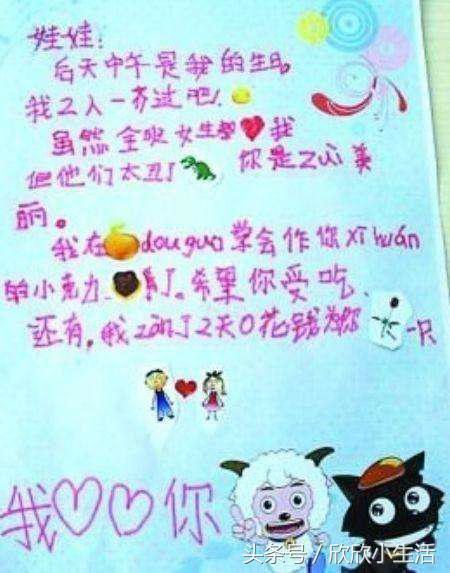 娃娃：
后天中午是我的生日，
我2人一齐过吧！
虽然全班女生都我
但他们太丑了 你是Zuì美
丽。
我在douguo学会作你xǐhuán
的小克力 了。希望你受吃、
还有，我zǎn了2天0花钱为你 一只
我♡♡你
头条号 / 欣欣小生活